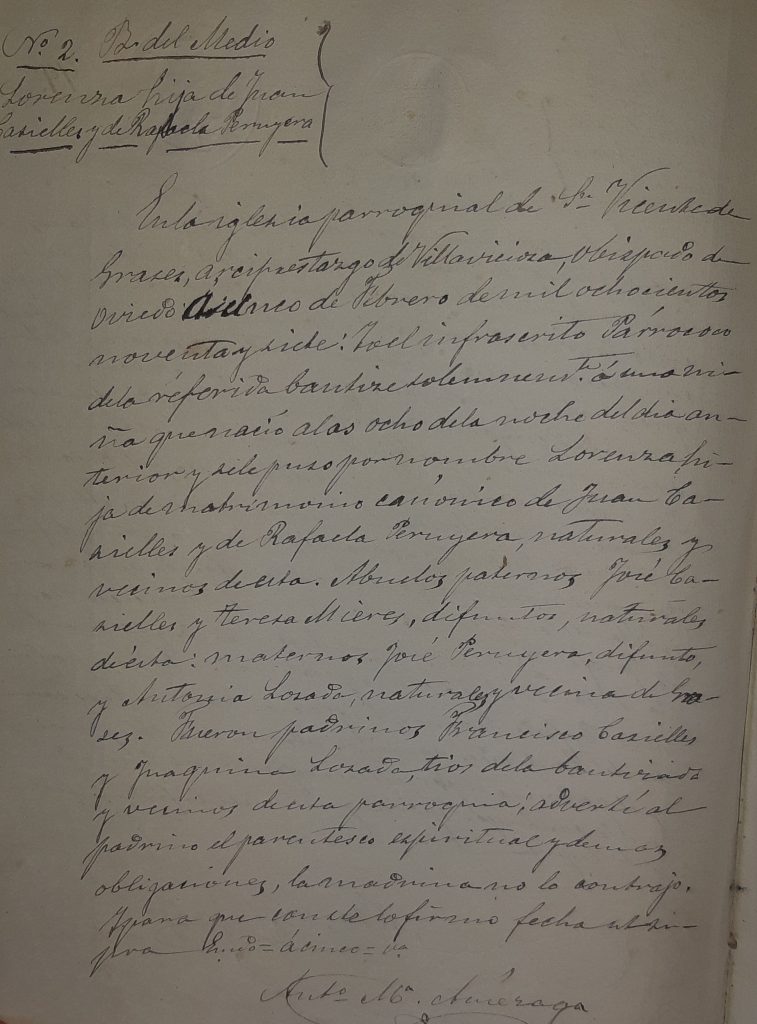 Nº 2. Bº del Medio
Lorenza hija de Juan
Casielles y de Rafaela Peruyera
En la iglesia parroquial de Sn. Vicente de
Grases, arciprestazgo de Villaviciosa, Obispado de
Oviedo á cinco de Febrero de mil ochocientos
noventa y siete: Yo el infrascrito Párroco
de la referida bautize solemnemte. á una ni-
ña que nació a las ocho de la noche del dia an-
terior y se le puso por nombre Lorenza, hi-
ja de matrimonio canónico de Juan Ca-
sielles y de Rafaela Peruyera, naturales y
vecinos de esta. Abuelos paternos José Ca-
sielles y Teresa Mieres, difuntos, naturales
de ésta: maternos José Peruyera, difunto,
y Antonia Losada, naturales y vecina de Gra-
ses. Fueron padrinos Francisco Casielles
y Juaquina Losada, tios de la bautizada
y vecinos de esta parroquia; advertí al
padrino el parentesco espiritual y demas
obligaciones, la madrina no lo contrajo.
Y para que conste lo firmo fecha ut su-
pra Endo = á cinco = va
Anto. Mª.